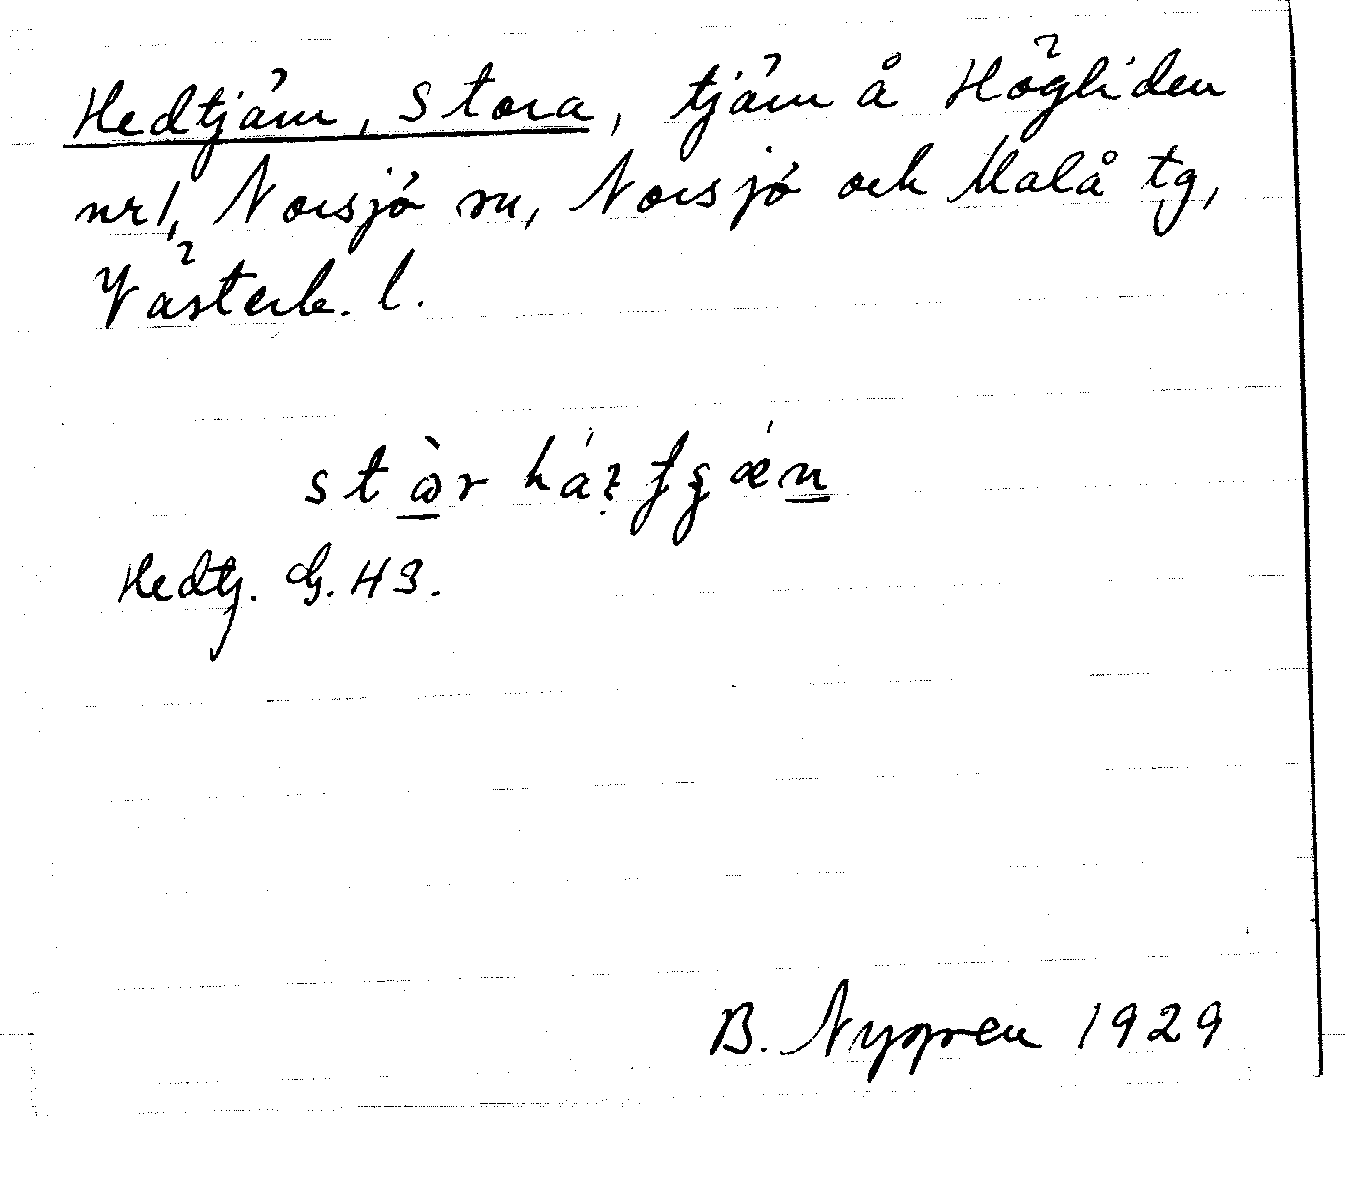 Hedtjärn, Stora, tjärn å Högliden
nr 1, Norsjö sn, Norsjö och Malå tg,
Västerb. l.
Hedtj. G. 43.
B. Nygren 1929